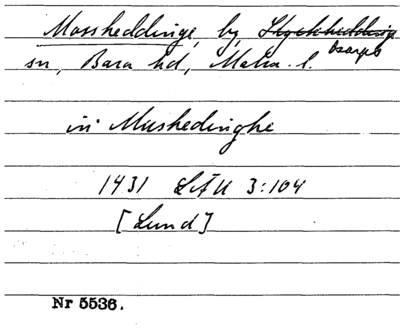 Mossheddinge, by, Styckheddinge Esarps
sn, Bara hd, Malm. l.
in Mushedinghe
1431 LÄU 3:104
[Lund]
Nr 5536.